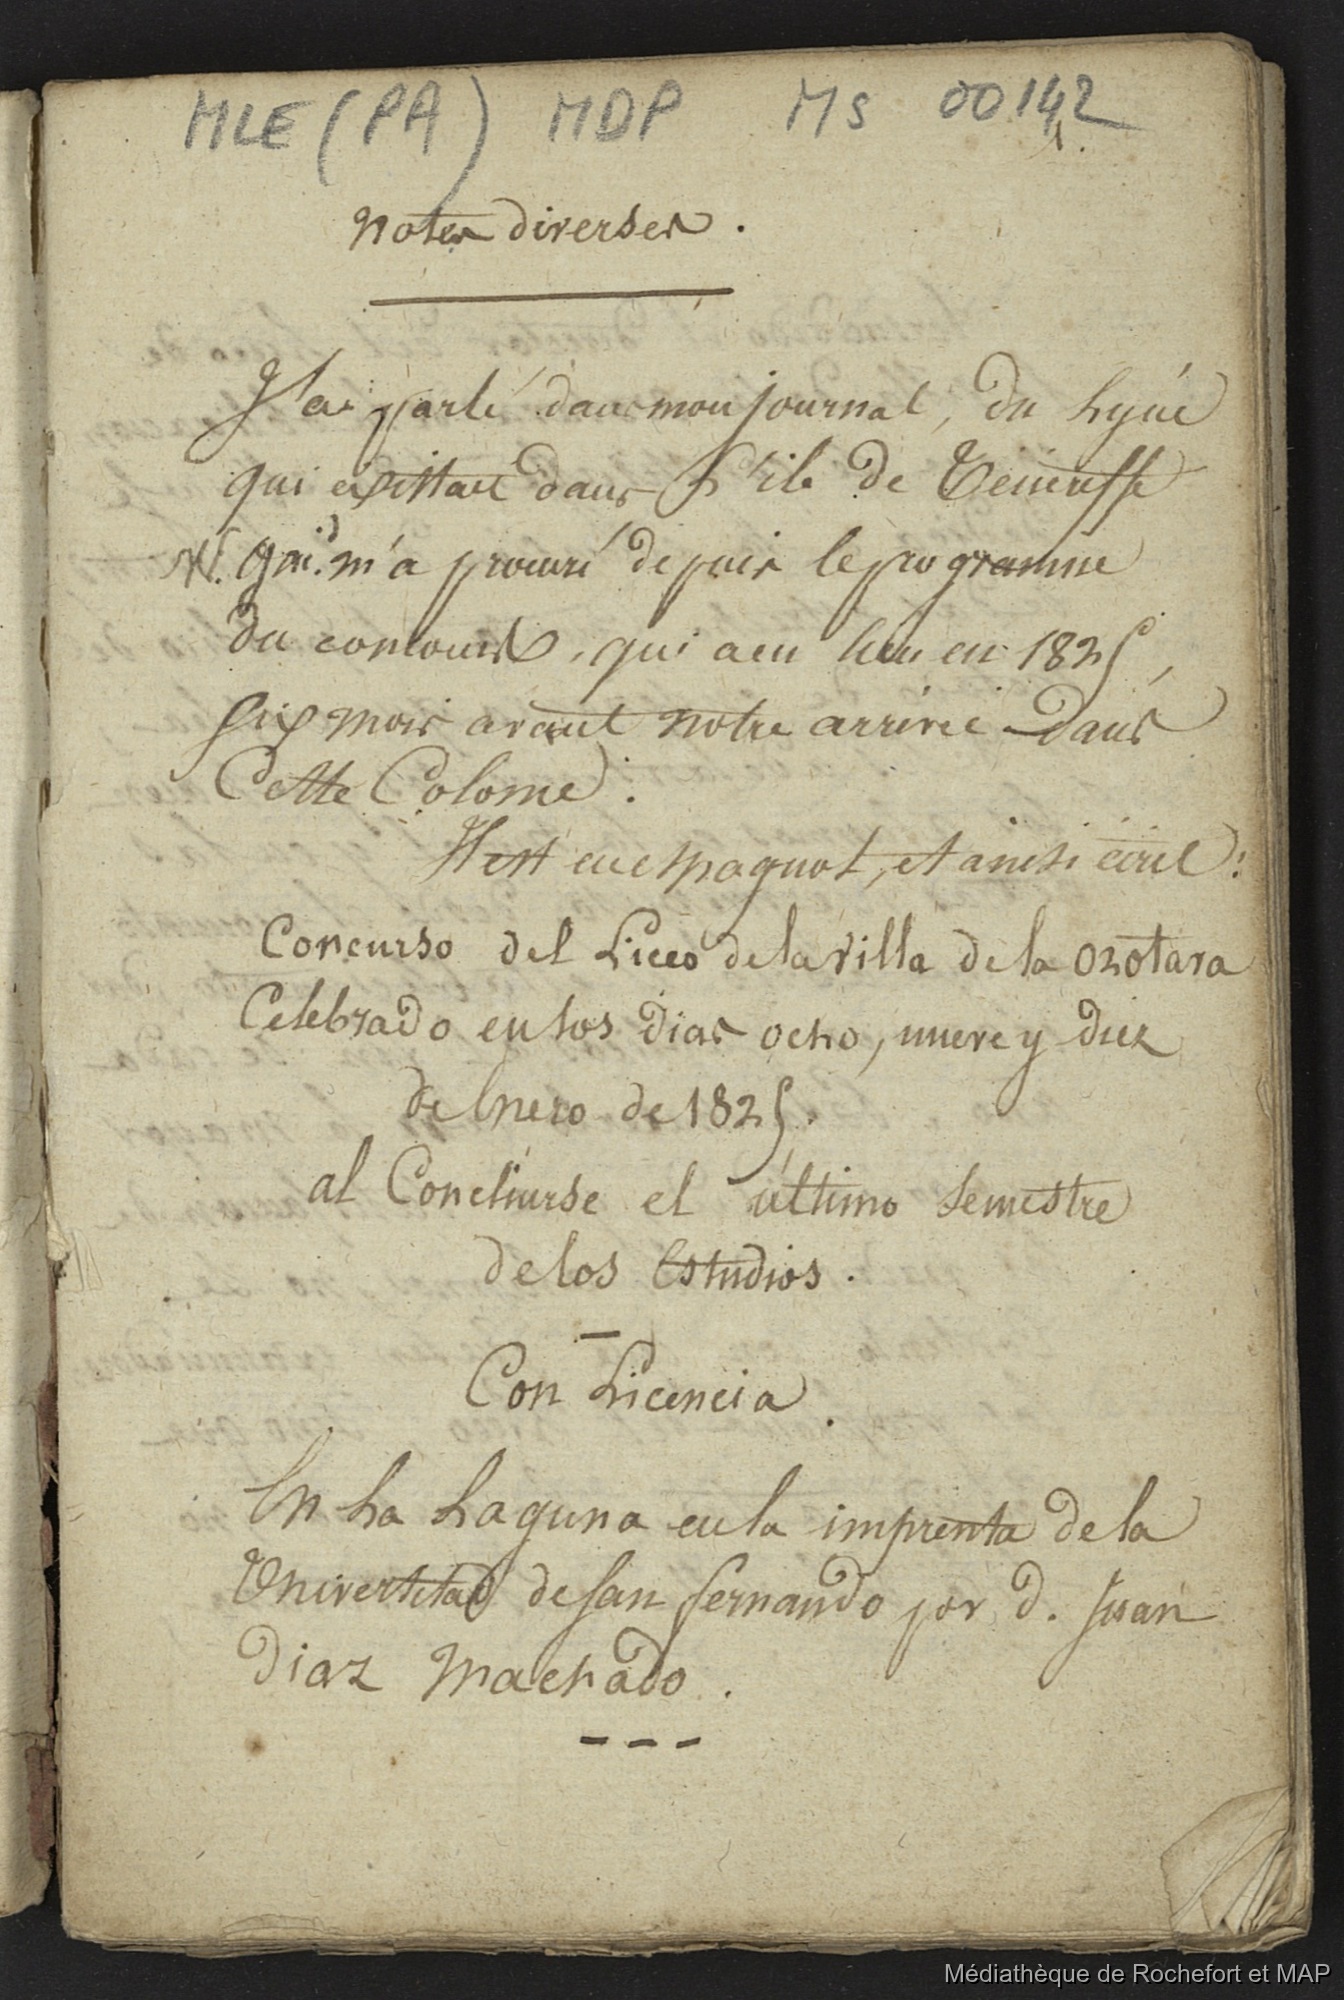 MLE (PA) MDP Ms 00142
1.
Notes diverses.
J'ai parlé dans mon journal, du Lycée
qui existait dans l'ile de Teneriffe
qui m'a procuré depuis le programme
du concours, qui a eu lieu en 1825,
six mois avant notre arrivée dans
Cette Colonie.
Il est en espagnol, et ainsi écrit:
Concurso del Liceo de la villa de la Orotava
Celebrado en los dias ocho, nueve y diez
de Enero de 1825.
al Concluirse el último Semestre
de los Estudios.
Con Licencia.
En La Laguna en la imprenta de la
Universitad de San fernando por d. Juan
Diaz Machado.
Médiathèque de Rochefort et MAP